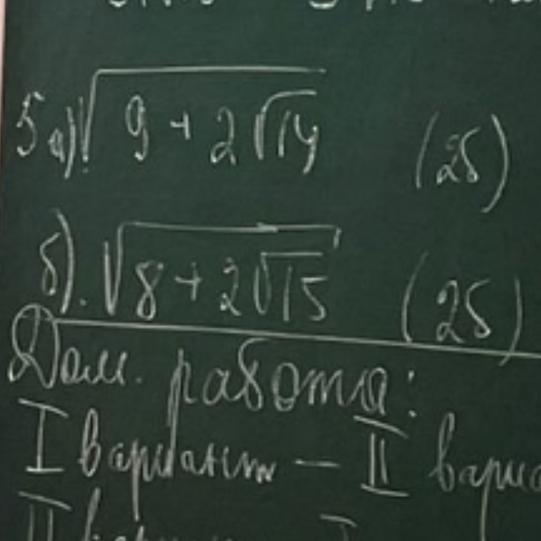 5 а) √(9 + 2√14) (2б)
б). √(8 + 2√15) (2б)
Дом. работа:
I вариант — II
II I